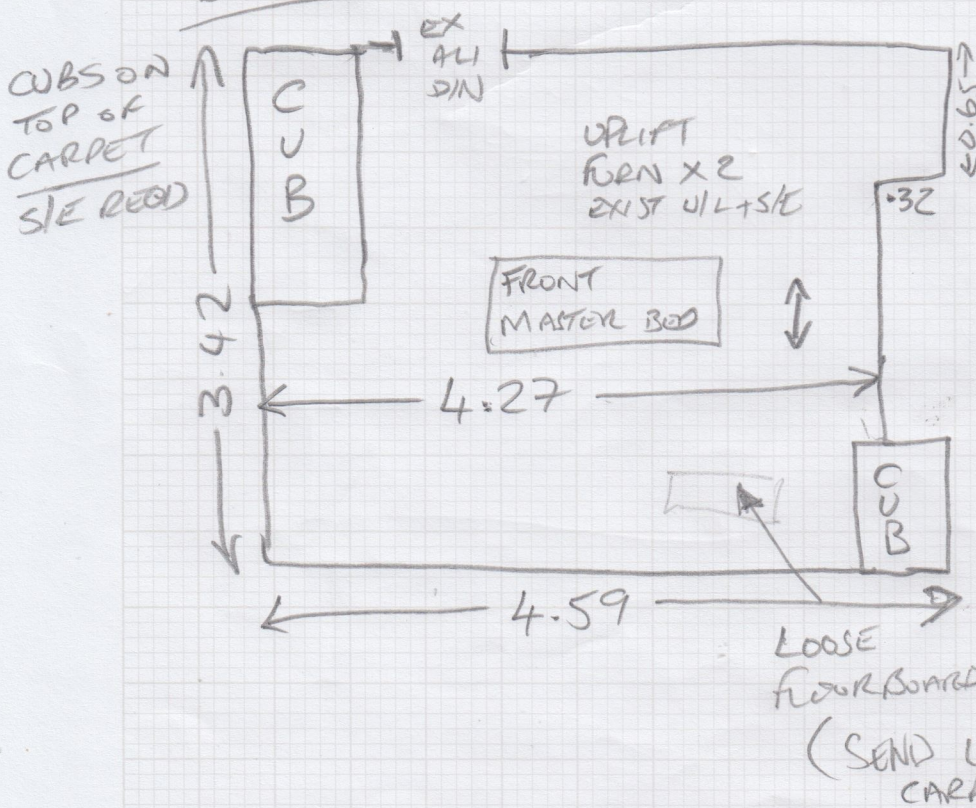 EX
ALI
D/N
CUBS ON
TOP OF
CARPET
S/E REQD
CUB
0.65
UPLIFT
FURN X 2
EXIST U/L + S/E
.32
FRONT
MASTER BED
3.42
4.27
CUB
4.59
LOOSE
FLOORBOARD
(SEND
CARP